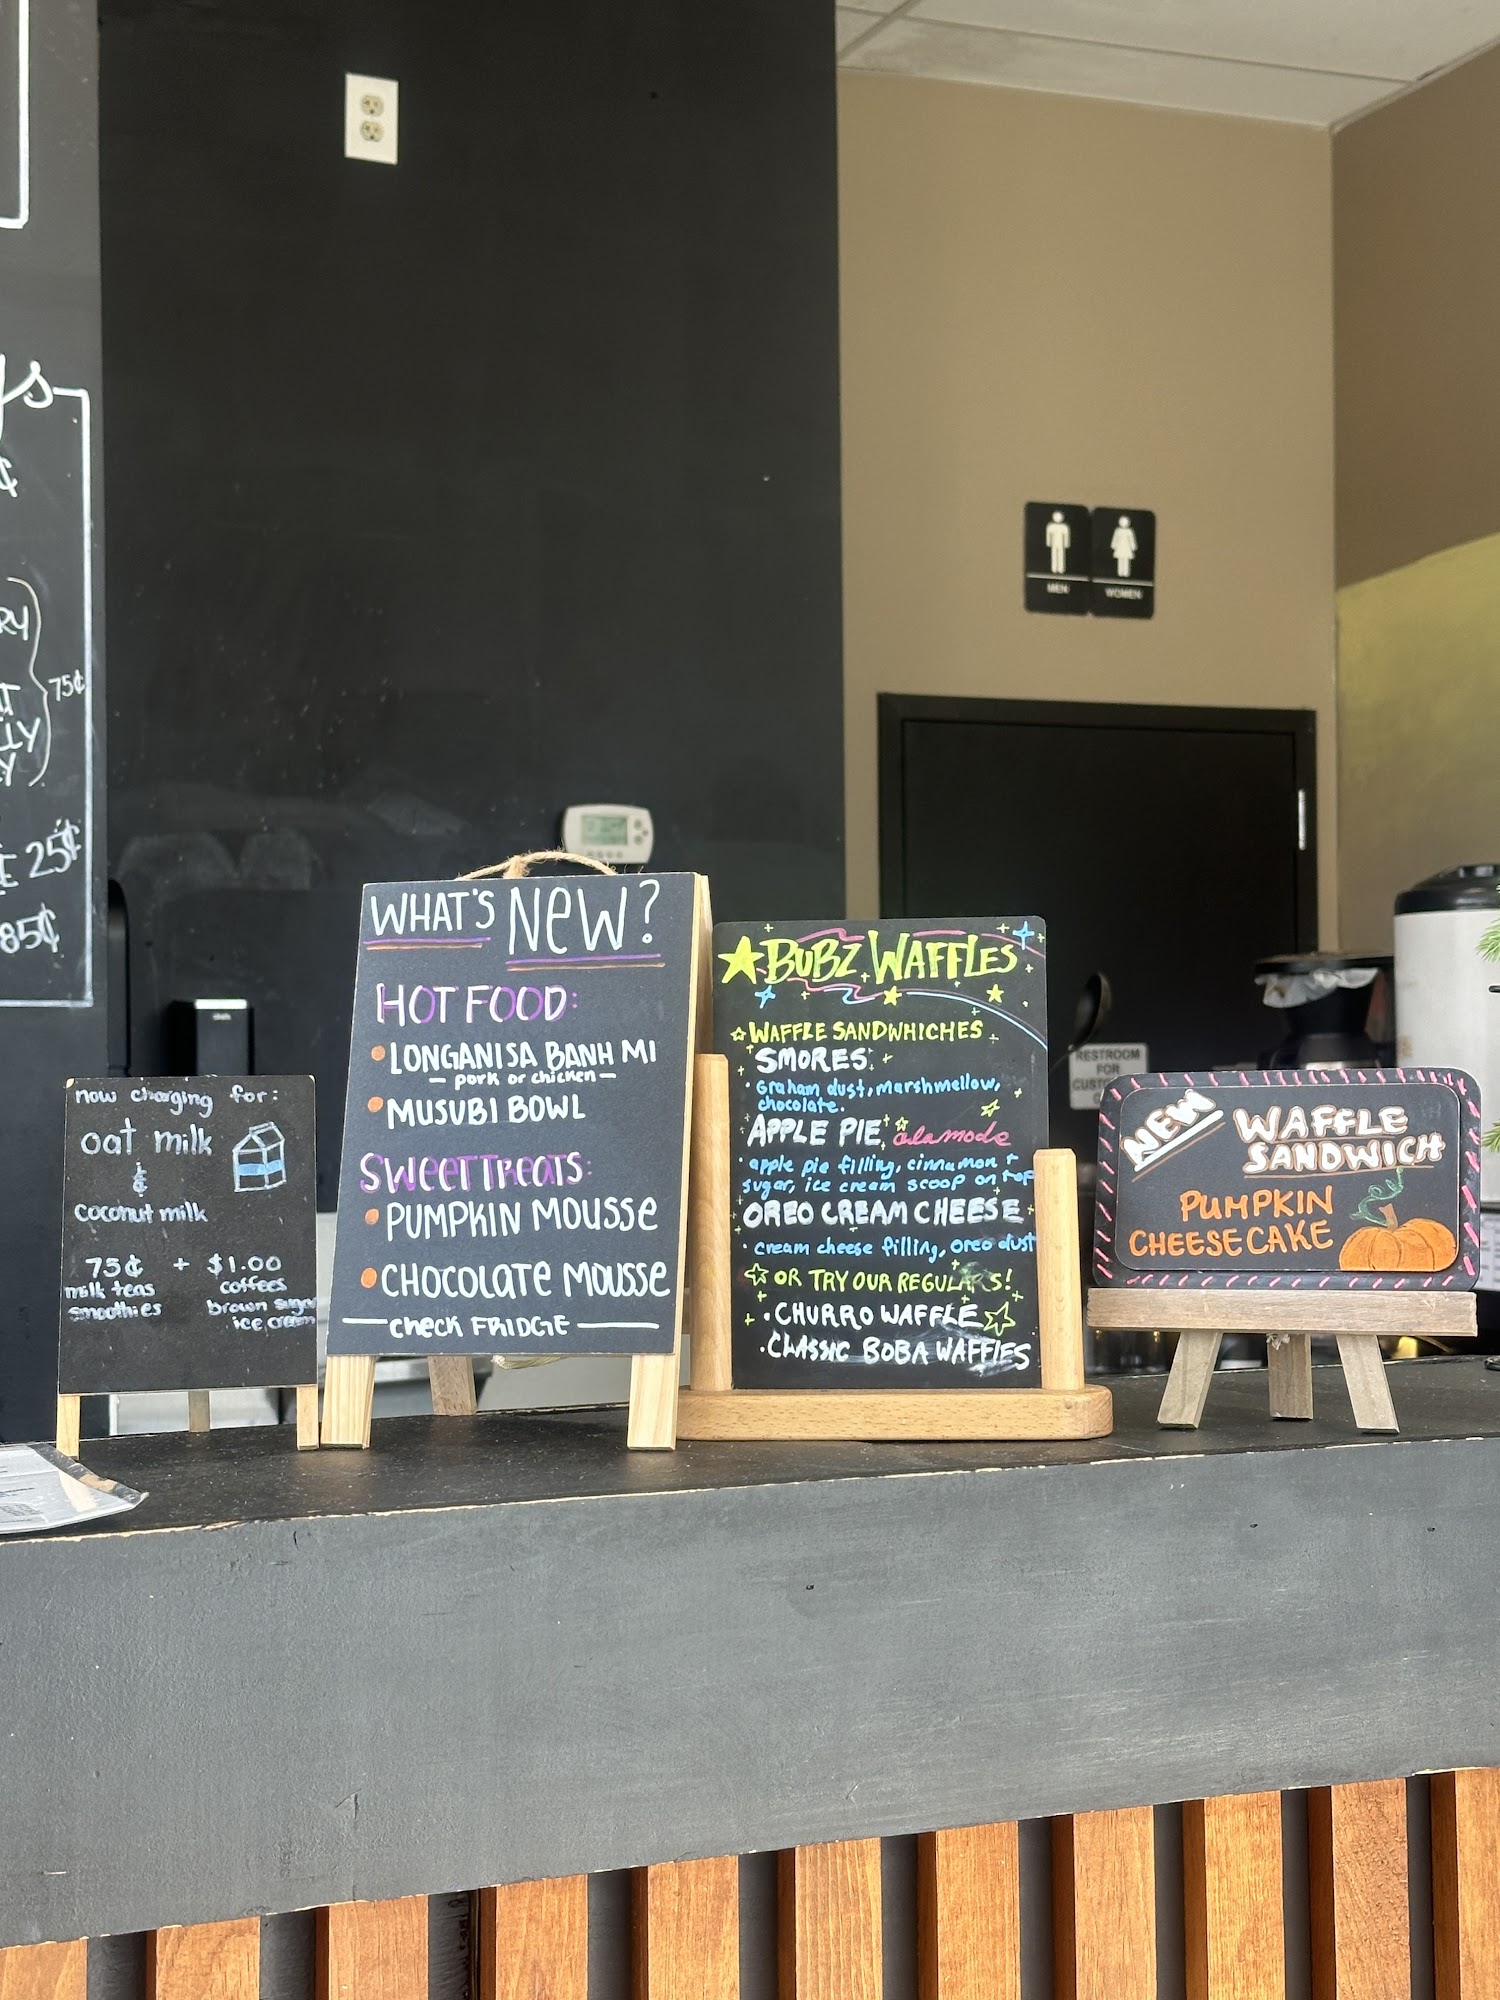 75¢
25¢
85¢
MEN
WOMEN
RESTROOM
FOR
now charging for:
oat milk
&
coconut milk
75¢ + $1.00
milk teas
smoothies
coffees
brown sugar
ice cream
WHAT'S NEW?
HOT FOOD:
• LONGANISA BANH MI
— pork or chicken —
• MUSUBI BOWL
SWEET TREATS:
• PUMPKIN MOUSSE
• CHOCOLATE MOUSSE
— CHECK FRIDGE —
BUBZ WAFFLES
WAFFLE SANDWHICHES
SMORES:
• Graham dust, marshmellow,
chocolate.
APPLE PIE a la mode
• apple pie filling, cinnamon +
sugar, ice cream scoop on top
OREO CREAM CHEESE
• cream cheese filling, oreo dust
OR TRY OUR REGULARS!
• CHURRO WAFFLE
• CLASSIC BOBA WAFFLES
NEW
WAFFLE
SANDWICH
PUMPKIN
CHEESECAKE